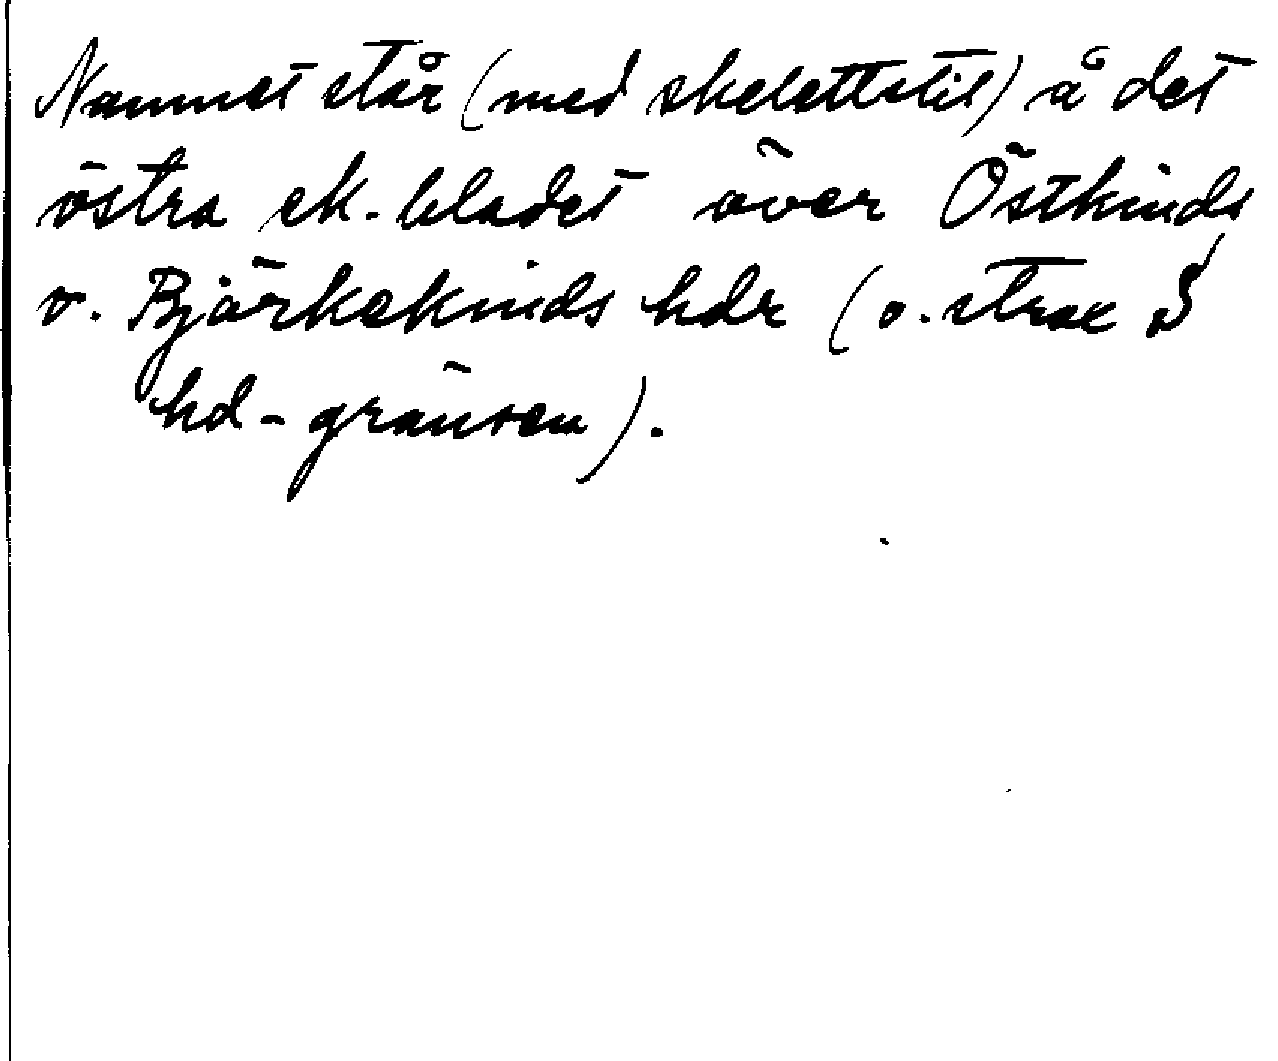 Namnet står (med skelettstil) å det
östra ek.-bladet över Östkinds
o. Björkekinds hdr (o. strax S
hd-gränsen).